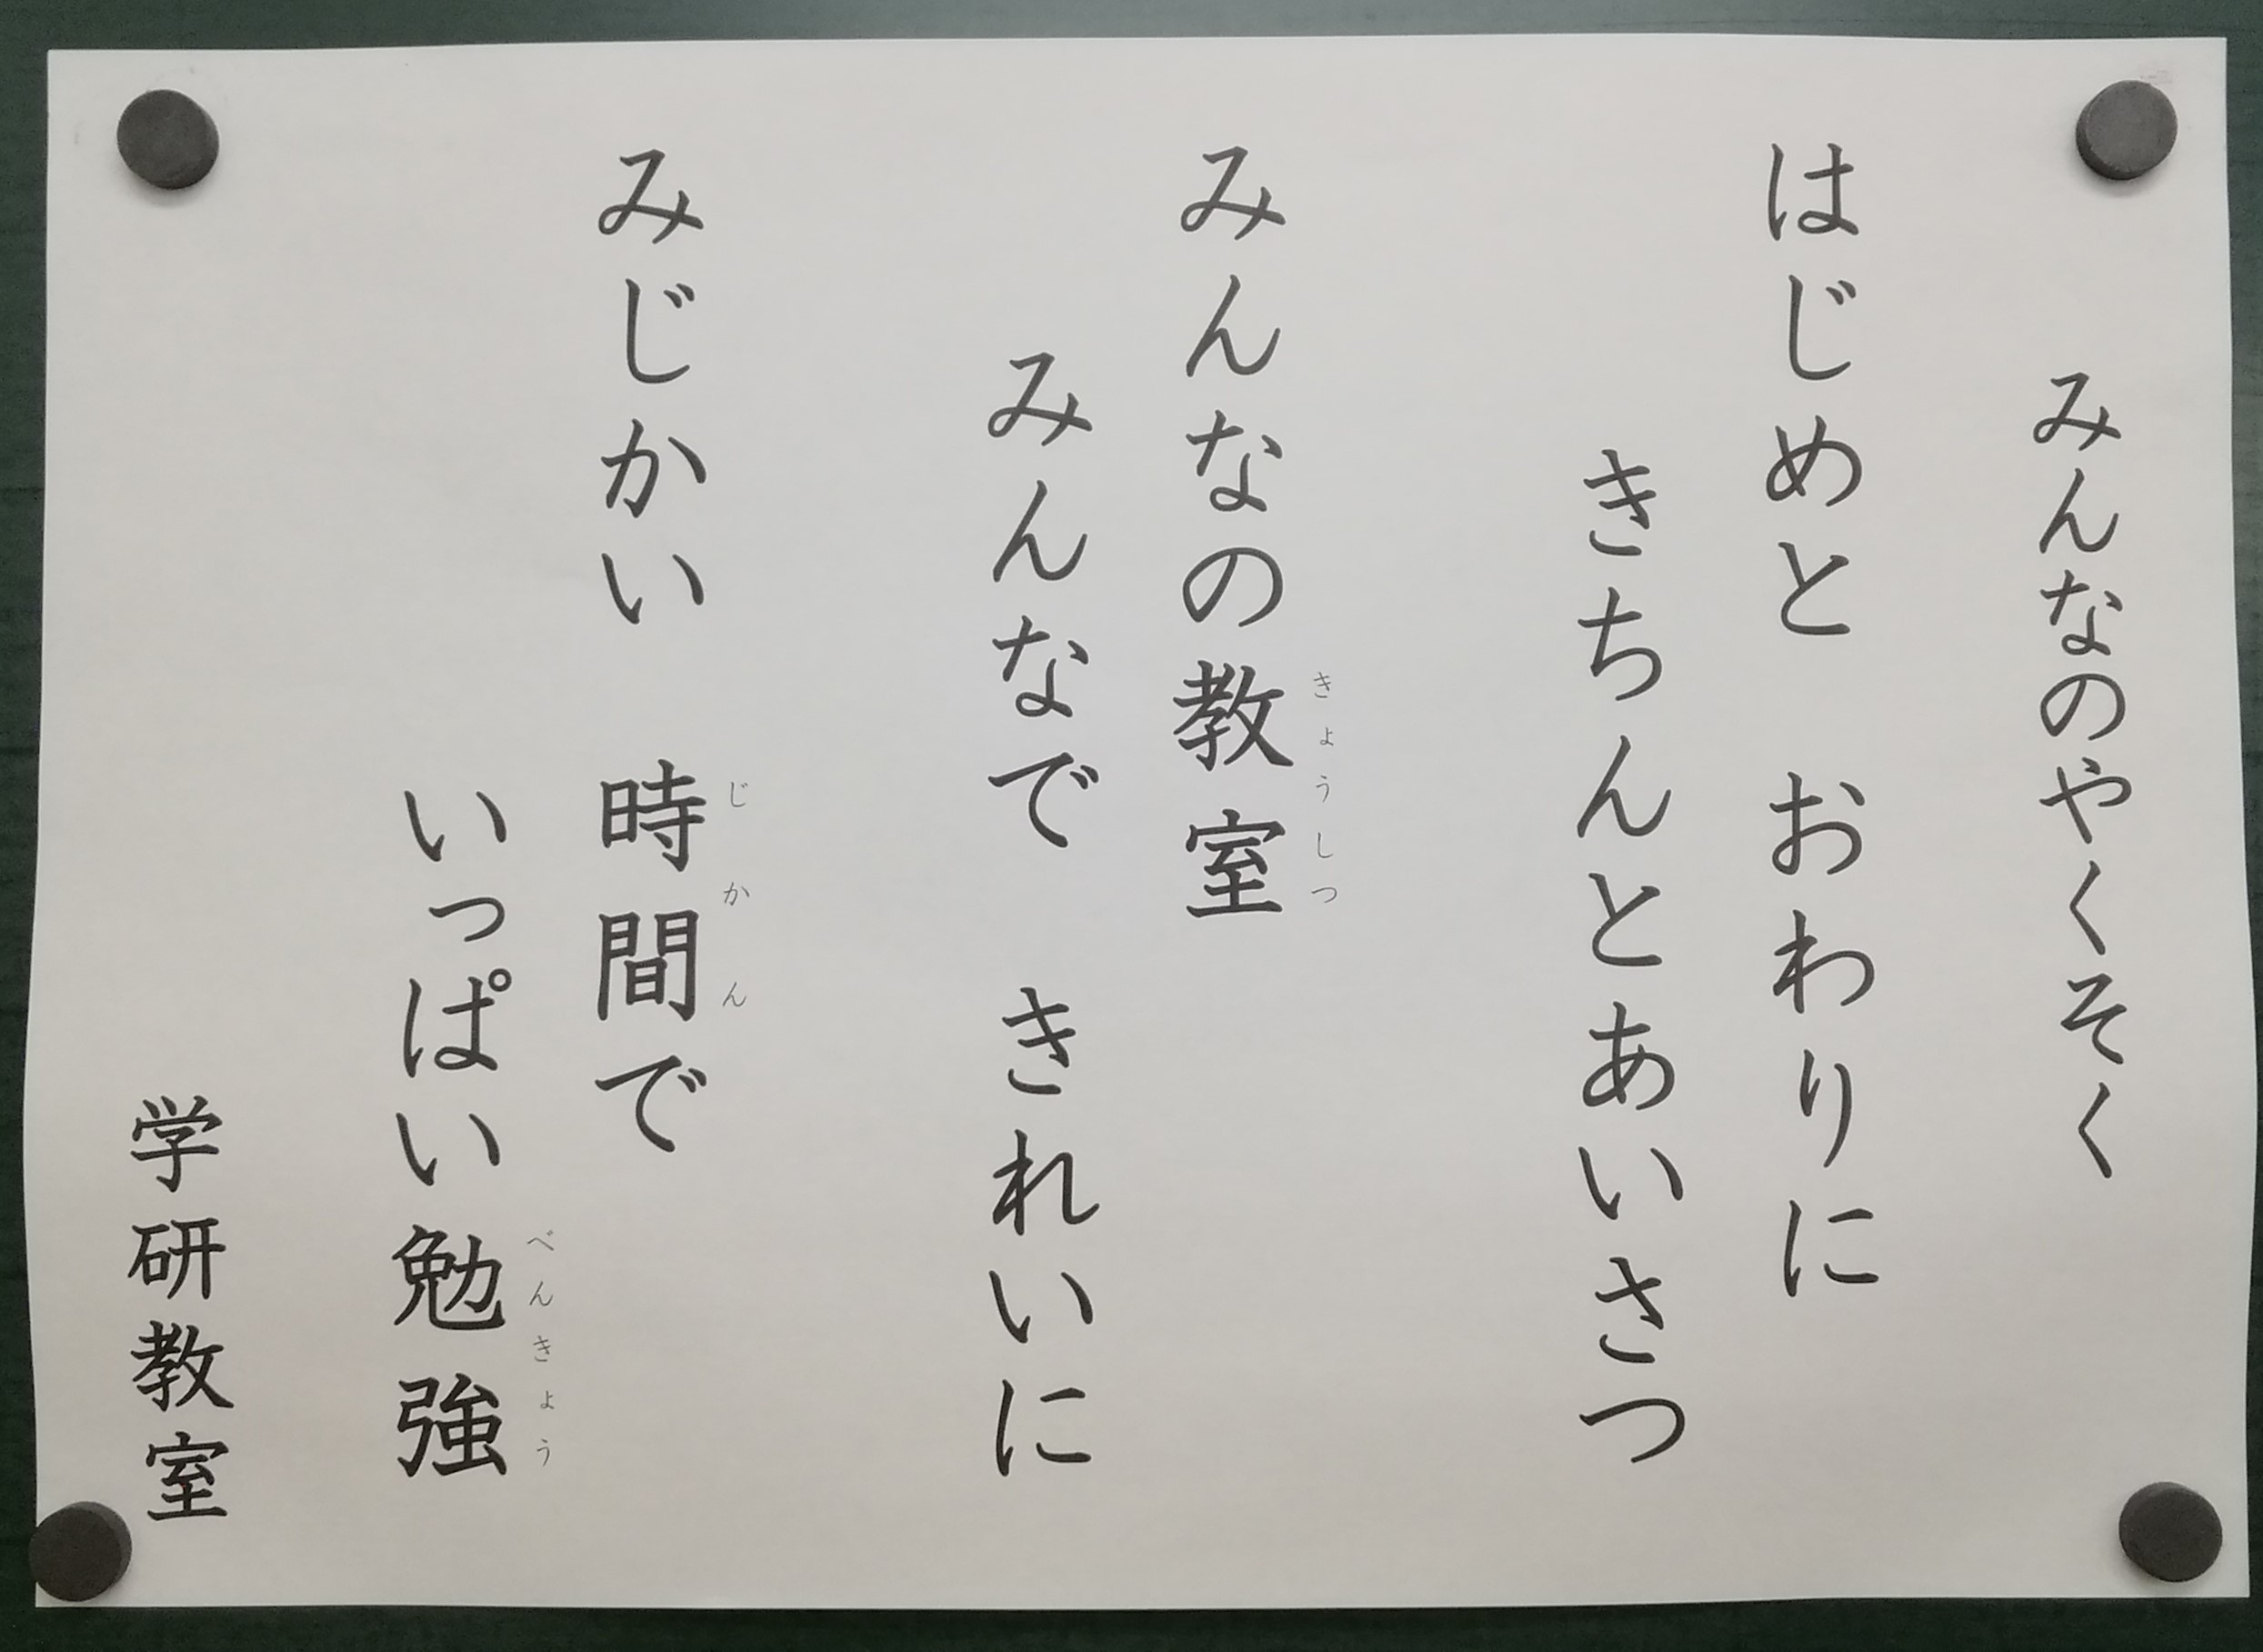 みんなのやくそく
はじめと　おわりに
きちんとあいさつ
みんなの教室
きょうしつ
みんなで　きれいに
みじかい　時間で
じかん
いっぱい勉強
べんきょう
学研教室